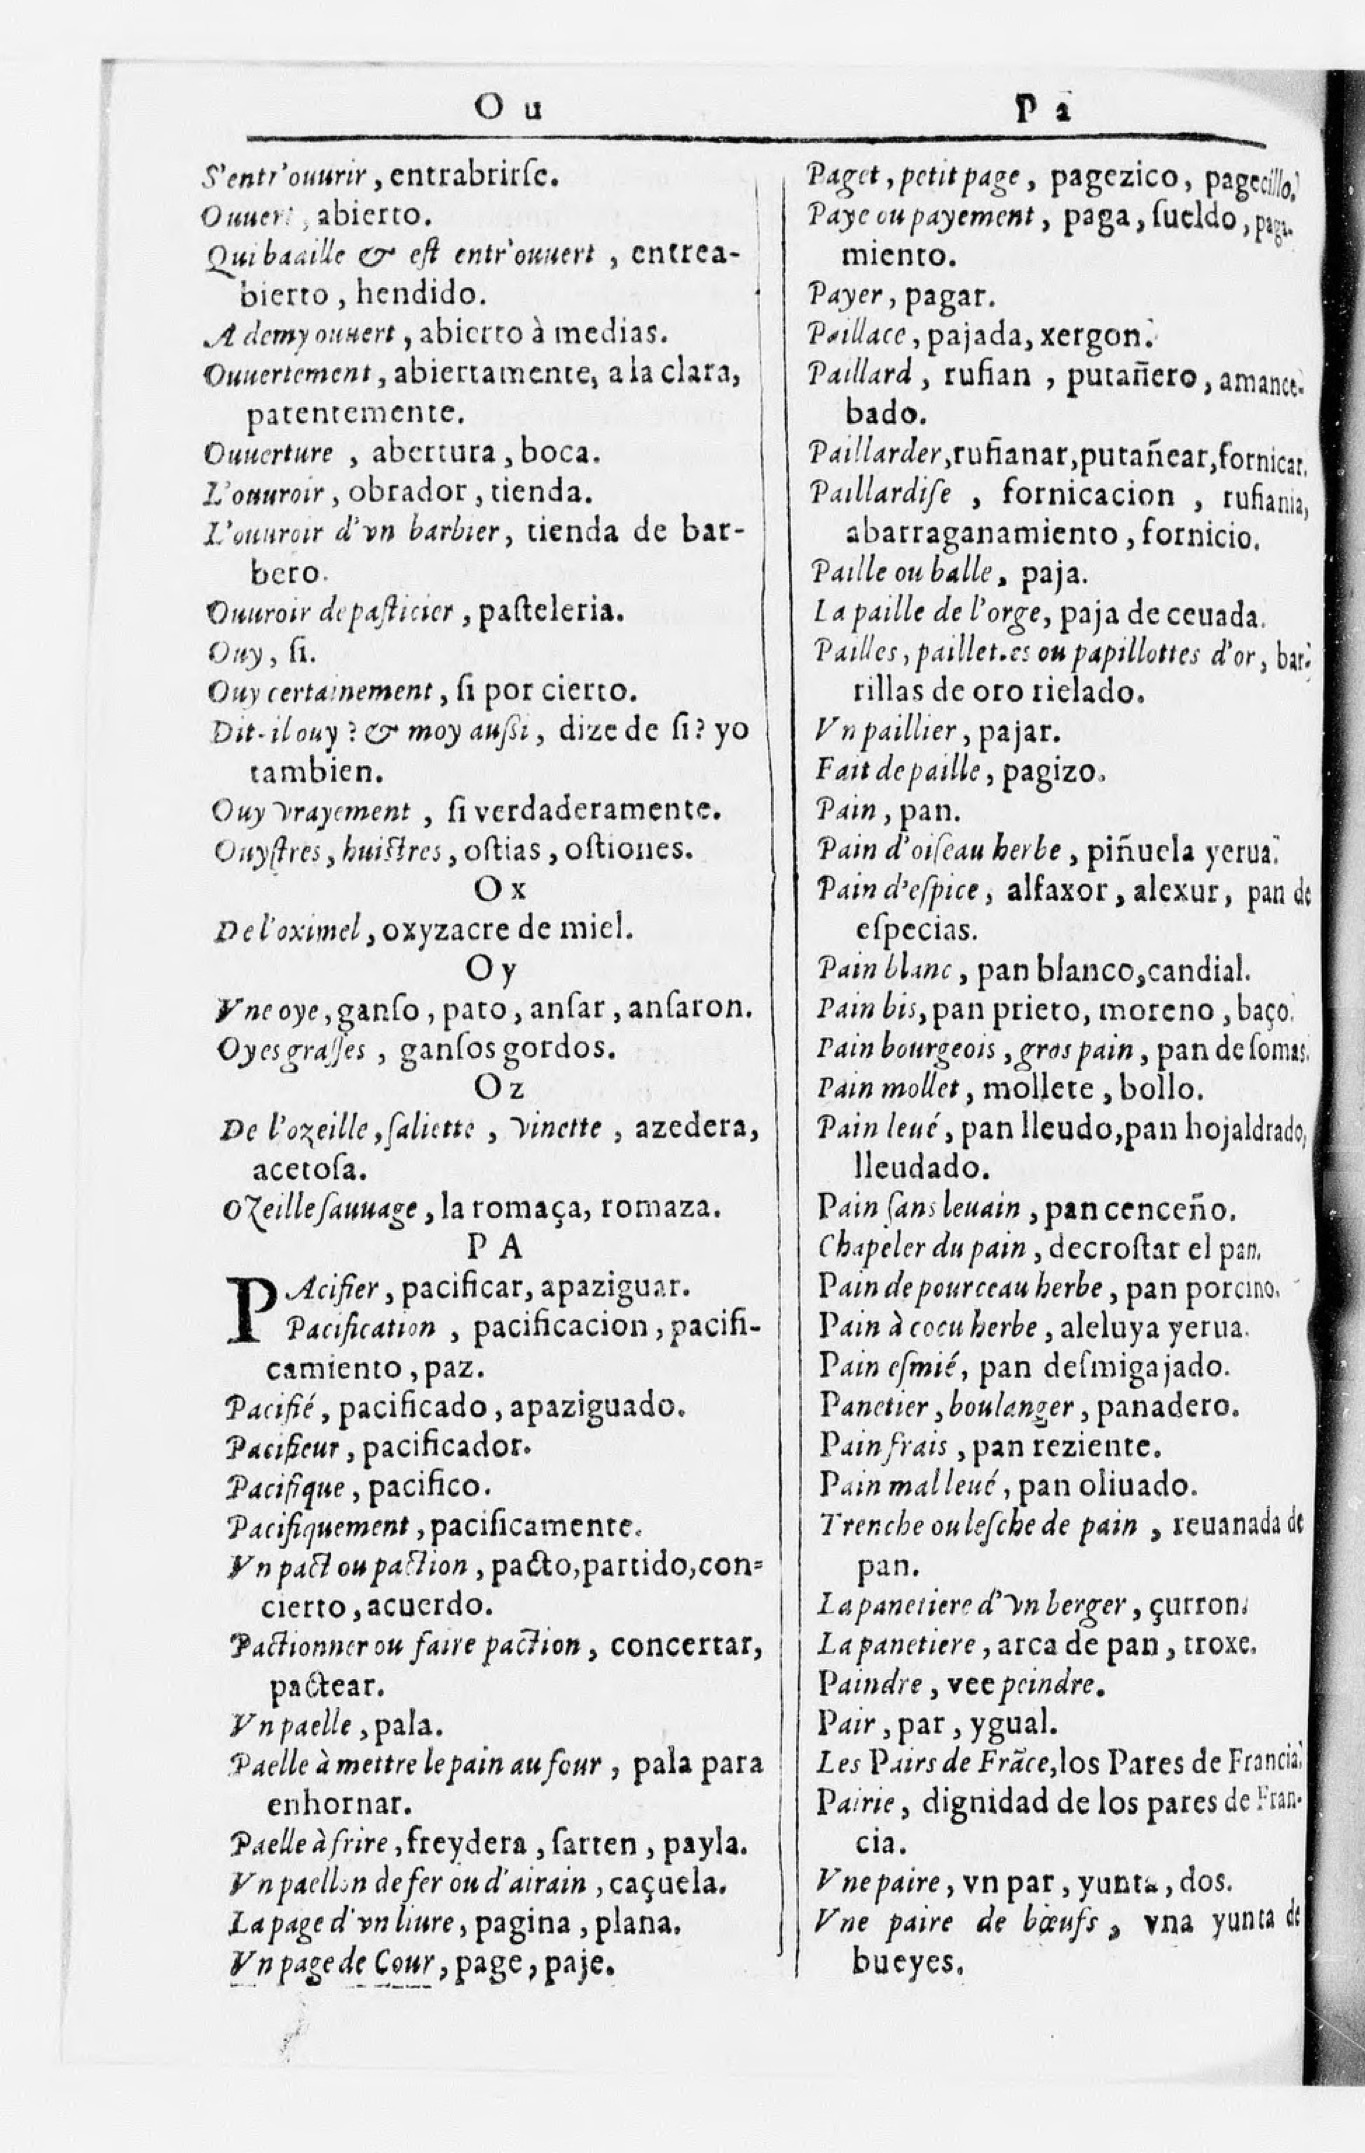 O u
S'entr'ouurir, entrabrirſe.
Ouuert, abierto.
Qui baaille & eſt entr'ouuert, entrea-
bierto, hendido.
A demy ouuert, abierto à medias.
Ouuertement, abiertamente, a la clara,
patentemente.
Ouuerture, abertura, boca.
L'ouuroir, obrador, tienda.
L'ouuroir d'vn barbier, tienda de bar-
bero.
Ouuroir de paſticier, paſteleria.
Ouy, ſi.
Ouy certainement, ſi por cierto.
Dit-il ouy? & moy auſſi, dize de ſi? yo
tambien.
Ouy vrayement, ſi verdaderamente.
Ouyſtres, huiſtres, oſtias, oſtiones.
O x
De l'oximel, oxyzacre de miel.
O y
Vne oye, ganſo, pato, anſar, anſaron.
Oyes graſſes, ganſos gordos.
O z
De l'ozeille, ſaliette, vinette, azedera,
acetoſa.
OZeille ſauuage, la romaça, romaza.
P A
PAcifier, pacificar, apaziguar.
Pacification, pacificacion, pacifi-
camiento, paz.
Pacifié, pacificado, apaziguado.
Pacifieur, pacificador.
Pacifique, pacifico.
Pacifiquement, pacificamente.
Vn pact ou paction, pacto, partido, con-
cierto, acuerdo.
Pactionner ou faire paction, concertar,
pactear.
Vn paelle, pala.
Paelle à mettre le pain au four, pala para
enhornar.
Paelle à frire, freydera, ſarten, payla.
Vn paellon de fer ou d'airain, caçuela.
La page d'vn liure, pagina, plana.
Vn page de Cour, page, paje.
P a
Paget, petit page, pagezico, pagecillo.
Paye ou payement, paga, ſueldo, paga-
miento.
Payer, pagar.
Paillace, pajada, xergon.
Paillard, rufian, putañero, amance-
bado.
Paillarder, rufianar, putañear, fornicar.
Paillardiſe, fornicacion, rufiania,
abarraganamiento, fornicio.
Paille ou balle, paja.
La paille de l'orge, paja de ceuada.
Pailles, paillettes ou papillottes d'or, bar-
rillas de oro rielado.
Vn paillier, pajar.
Fait de paille, pagizo.
Pain, pan.
Pain d'oiſeau herbe, piñuela yerua.
Pain d'eſpice, alfaxor, alexur, pan de
eſpecias.
Pain blanc, pan blanco, candial.
Pain bis, pan prieto, moreno, baço.
Pain bourgeois, gros pain, pan de ſomas.
Pain mollet, mollete, bollo.
Pain leué, pan lleudo, pan hojaldrado,
lleudado.
Pain ſans leuain, pan cenceño.
Chapeler du pain, decroſtar el pan.
Pain de pourceau herbe, pan porcino.
Pain à cocu herbe, aleluya yerua.
Pain eſmié, pan deſmigajado.
Panetier, boulanger, panadero.
Pain frais, pan reziente.
Pain mal leué, pan oliuado.
Trenche ou leſche de pain, reuanada de
pan.
La panetiere d'vn berger, çurron.
La panetiere, arca de pan, troxe.
Paindre, vee peindre.
Pair, par, ygual.
Les Pairs de Frãce, los Pares de Francia.
Pairie, dignidad de los pares de Fran-
cia.
Vne paire, vn par, yunta, dos.
Vne paire de bœufs, vna yunta de
bueyes.